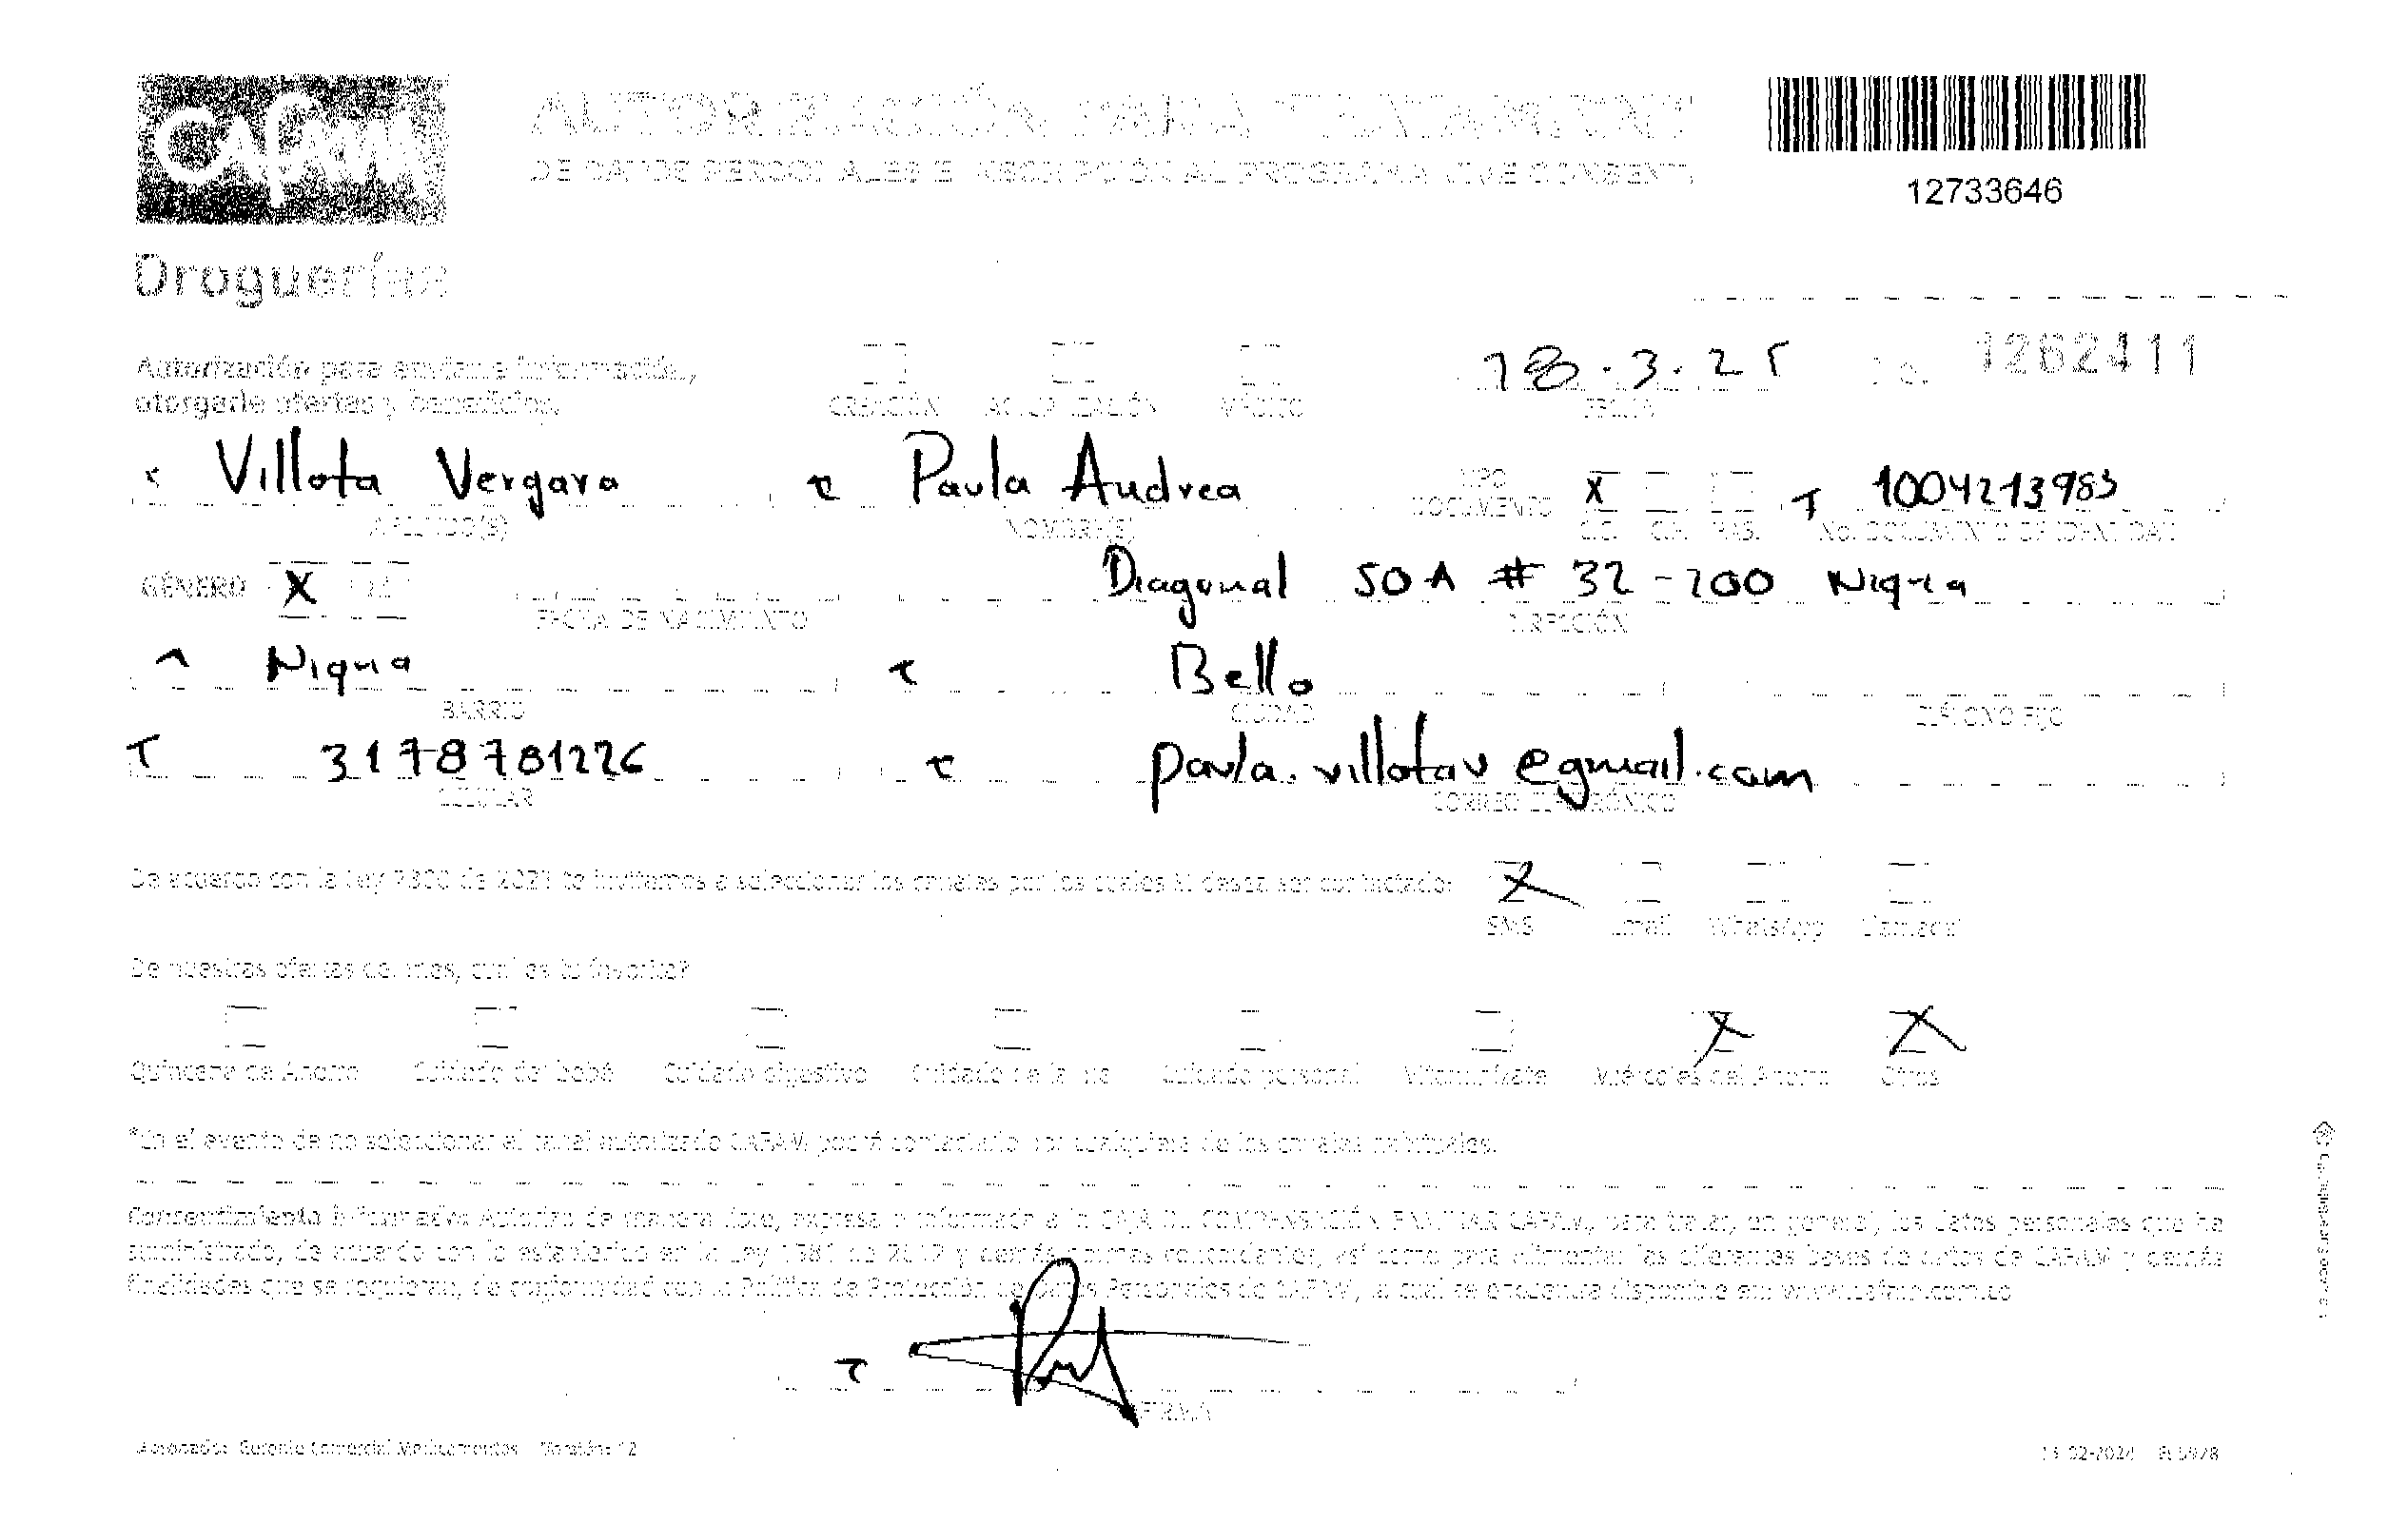 CAfAM
AUTORIZACIÓN PARA
DE DATOS PERSONALES E INSCRIPCIÓN AL PROGRAMA VIVE CONSENT
12733646
Droguerías
Autorización para enviarle información,
otorgarle ofertas y beneficios.
CREACIÓN ACTUALIZACIÓN MÉDICO
18.3.25
FECHA
No. 1262411
Villota Vergara Paula Andrea
TIPO DOCUMENTO X 1004213983
APELLIDO(S) NOMBRE(S) C.C. C.E. PAS. No. DOCUMENTO DE IDENTIDAD
GÉNERO X M Diagonal 50A # 32-200 Niquia
FECHA DE NACIMIENTO DIRECCIÓN
Niquia Bello
BARRIO CIUDAD TELÉFONO FIJO
3178781226 paula.villotav@gmail.com
CELULAR CORREO ELECTRÓNICO
De acuerdo con la Ley 2300 de 2023 te invitamos a seleccionar los canales por los cuales sí desea ser contactado: X
SMS Email WhatsApp Llamada
De nuestras ofertas del mes, cuál es tu favorita?
X X
Quincena de Ahorro Cuidado del bebé Cuidado digestivo Cuidado de la piel Cuidado personal Vitamínizate Miércoles del Ahorro Otros
*En el evento de no seleccionar el canal autorizado CAFAM podrá contactarlo por cualquiera de los canales habituales.
Consentimiento informado: Autorizo de manera libre, expresa e informada a la CAJA DE COMPENSACIÓN FAMILIAR CAFAM, para tratar, en general, los datos personales que he
suministrado, de acuerdo con lo establecido en la Ley 1581 de 2012 y demás normas concordantes, así como para alimentar las diferentes bases de datos de CAFAM y demás
finalidades que se requieran, de conformidad con la Política de Protección de Datos Personales de CAFAM, la cual se encuentra disponible en: www.cafam.com.co
FIRMA
Aprobado: Gerencia Comercial Medicamentos Versión: 12